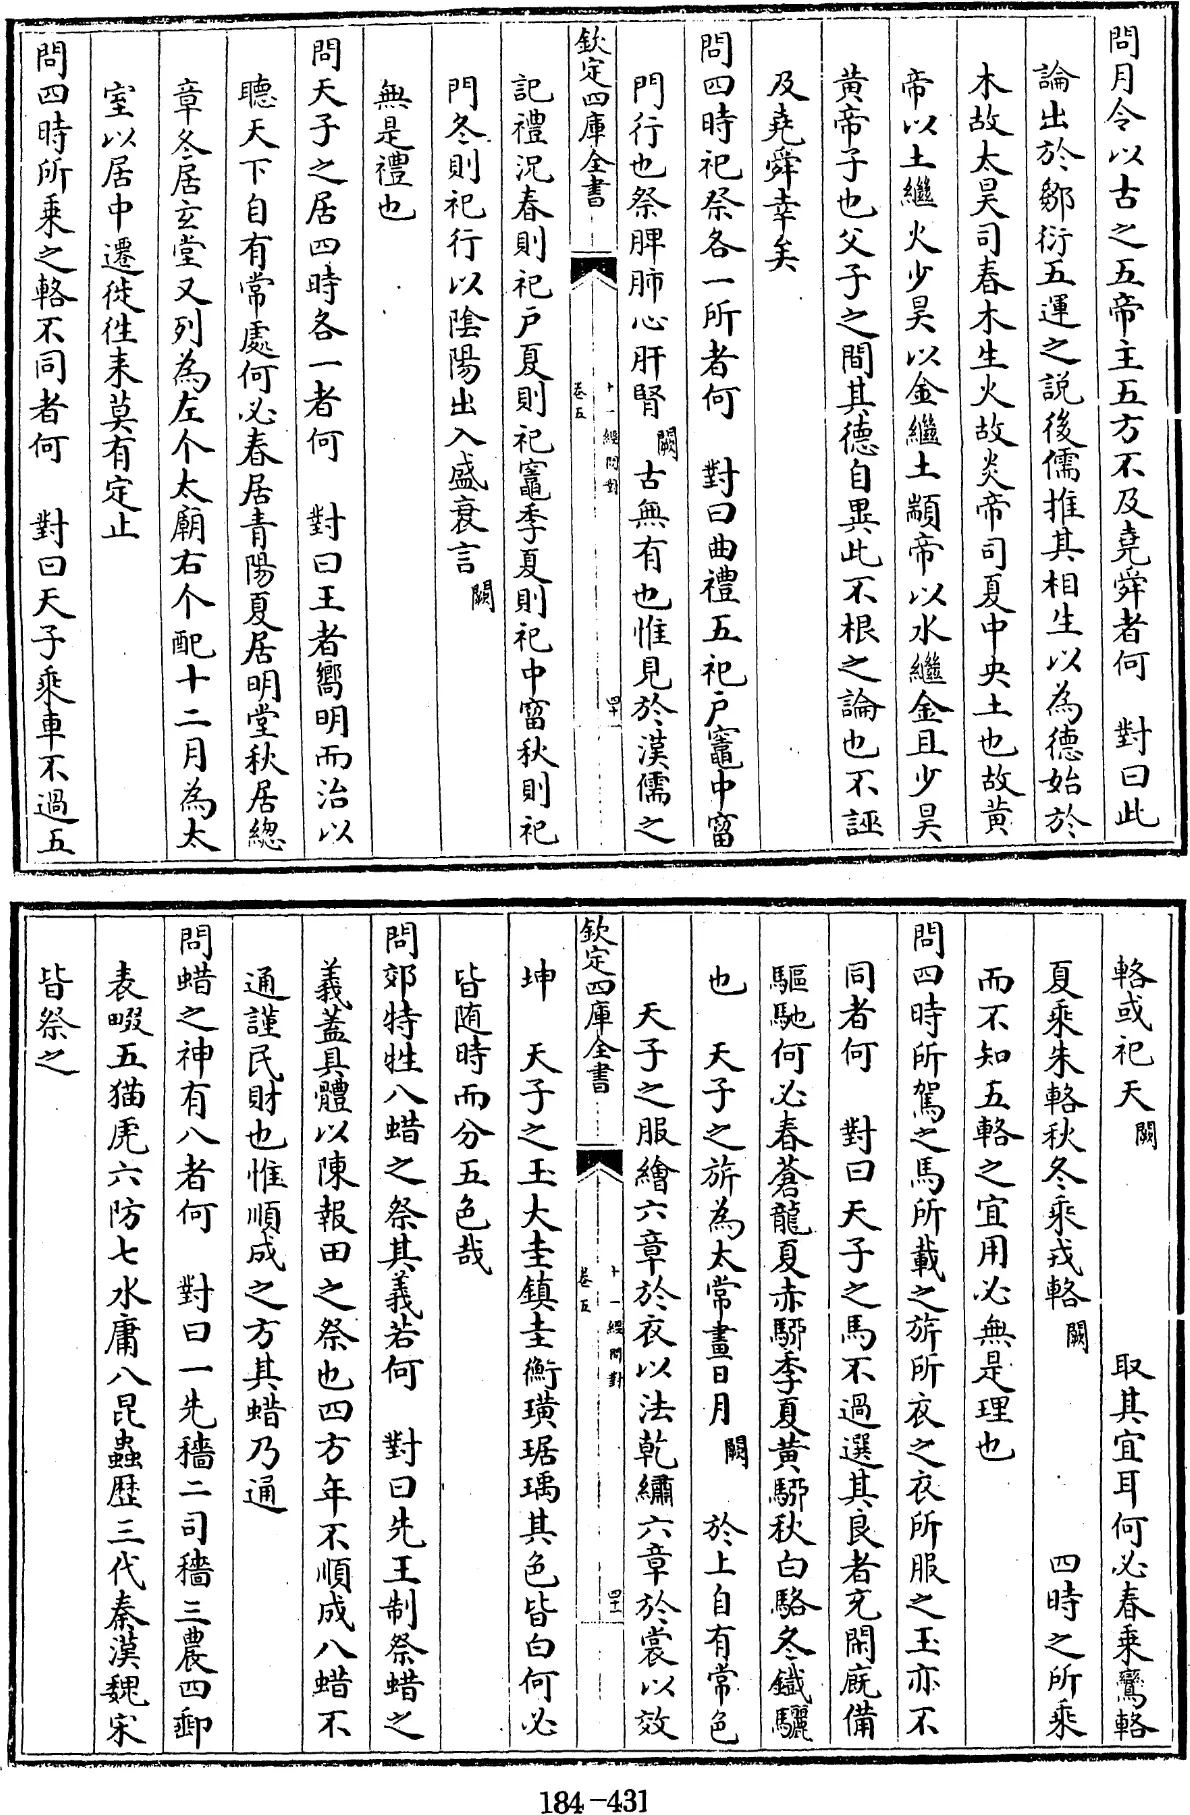 問月令以古之五帝主五方不及堯舜者何　對曰此
論出於鄒衍五運之說後儒推其相生以為德始於
木故太昊司春木生火故炎帝司夏中央土也故黄
帝以土繼火少昊以金繼土顓帝以水繼金且少昊
黄帝子也父子之間其德自異此不根之論也不誣
及堯舜幸矣
問四時祀祭各一所者何　對曰曲禮五祀户竈中霤
門行也祭脾肺心肝腎闕　古無有也惟見於漢儒之
欽定四庫全書　卷五　十一經問對　四十一
記禮況春則祀户夏則祀竈季夏則祀中霤秋則祀
門冬則祀行以陰陽出入盛衰言闕
無是禮也
問天子之居四時各一者何　對曰王者嚮明而治以
聽天下自有常處何必春居青陽夏居明堂秋居總
章冬居玄堂又列為左个太廟右个配十二月為太
室以居中遷徙徃來莫有定止
問四時所乘之輅不同者何　對曰天子乘車不過五
輅或祀天闕　取其宜耳何必春乘鸞輅
夏乘朱輅秋冬乘戎輅闕　四時之所乘
而不知五輅之宜用必無是理也
問四時所駕之馬所載之旂所衣之衣所服之玉亦不
同者何　對曰天子之馬不過選其良者充閑廐備
驅馳何必春蒼龍夏赤騮季夏黄騮秋白駱冬鐵驪
也　天子之旂為太常畫日月闕　於上自有常色
天子之服繪六章於衣以法乾繡六章於裳以效
欽定四庫全書　卷五　十一經問對　四十二
坤　天子之玉大圭鎮圭衡璜琚瑀其色皆白何必
皆随時而分五色哉
問郊特牲八蜡之祭其義若何　對曰先王制祭蜡之
義蓋具體以陳報田之祭也四方年不順成八蜡不
通謹民財也惟順成之方其蜡乃通
問蜡之神有八者何　對曰一先穡二司穡三農四郵
表畷五猫虎六防七水庸八昆蟲歷三代秦漢魏宋
皆祭之
184-431